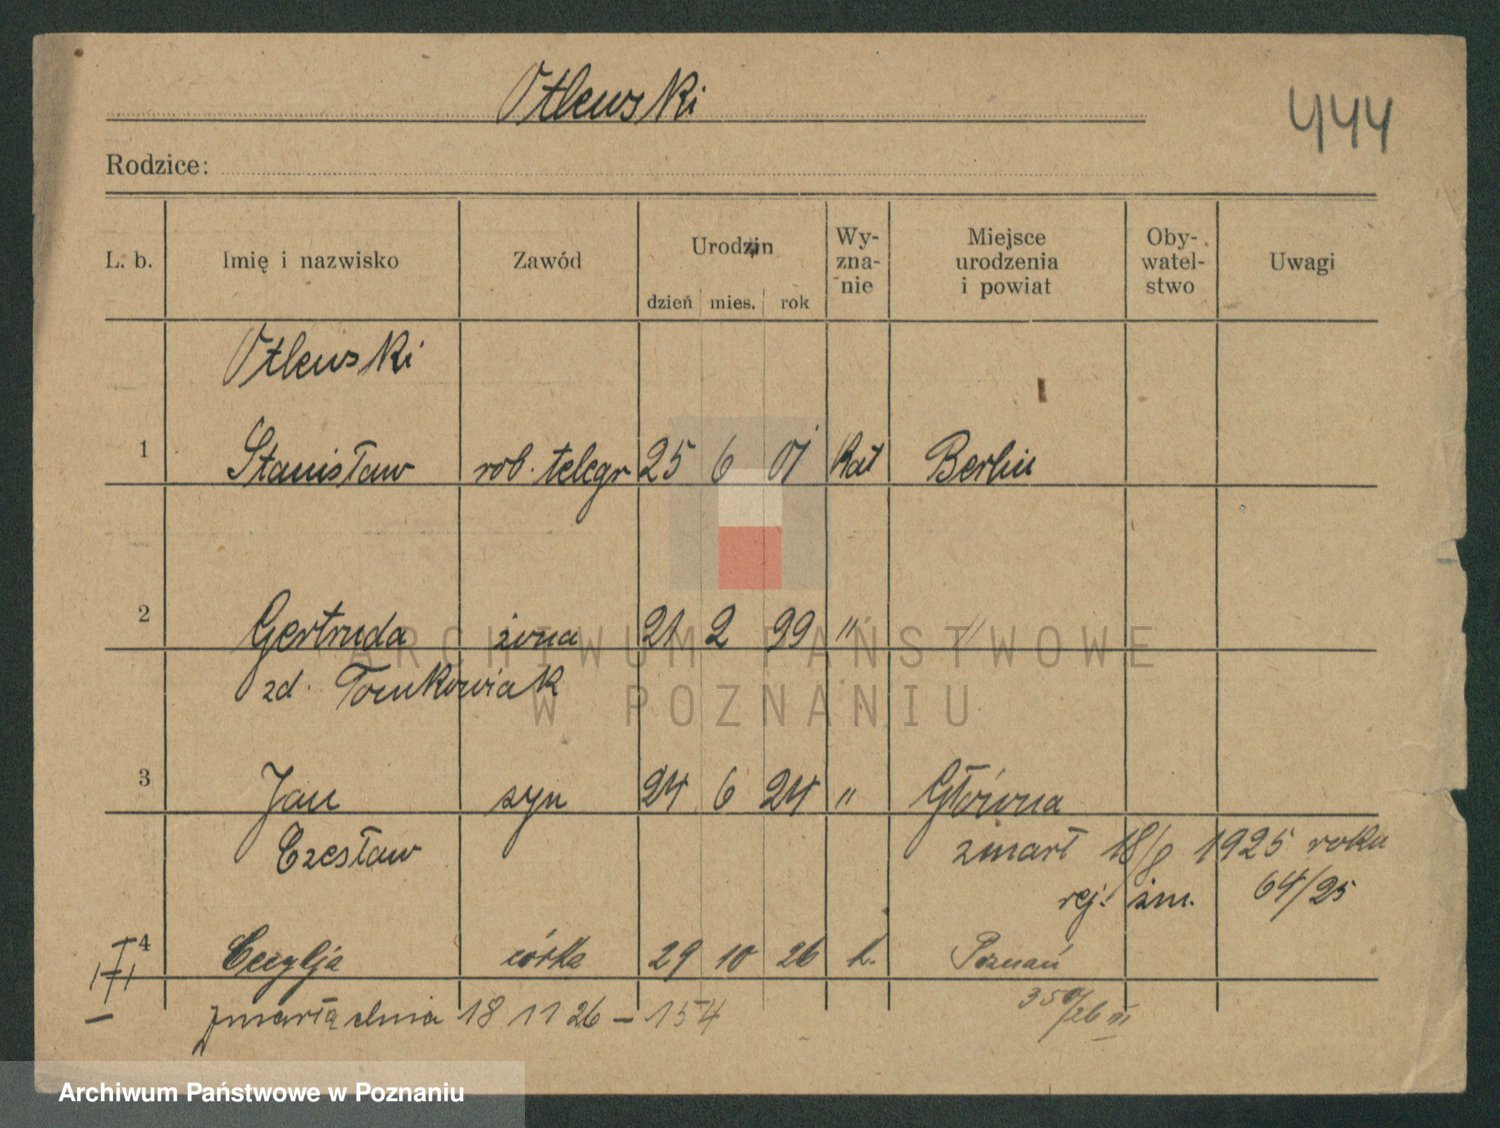 Otlewski
444
Rodzice:
L. b. Imię i nazwisko Zawód Urodzin dzień mies. rok Wy-zna-nie Miejsce urodzenia i powiat Oby-watel-stwo Uwagi
Otlewski
1 Stanisław rob. telegr 25 6 01 Kat Berlin
2 Gertruda żona 21 2 99 " "
zd. Tomkowiak
3 Jan syn 24 6 24 " Główna
Czesław zmarł 18/8 1925 roku
rej. zm. 64/25
4 Cecylja córka 29 10 26 k. Poznań
zmarła dnia 18 11 26 - 154
ARCHIWUM PAŃSTWOWE
W POZNANIU
Archiwum Państwowe w Poznaniu